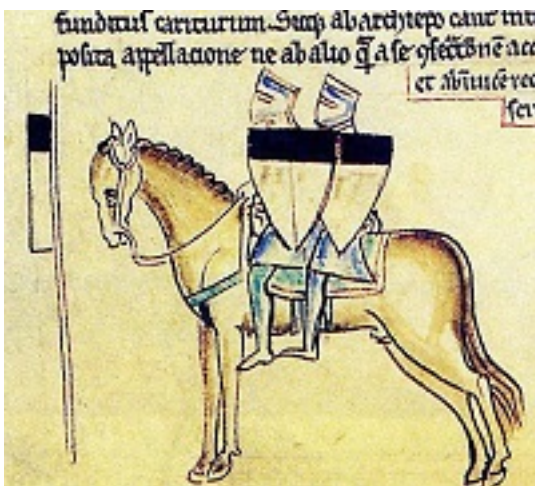 funditus cariturum. Sicqȝ ab archiep̄o caute int
posita appellacione ne ab alio q̄ a se ꝯsecc̄onē acc
et abīuicē rec